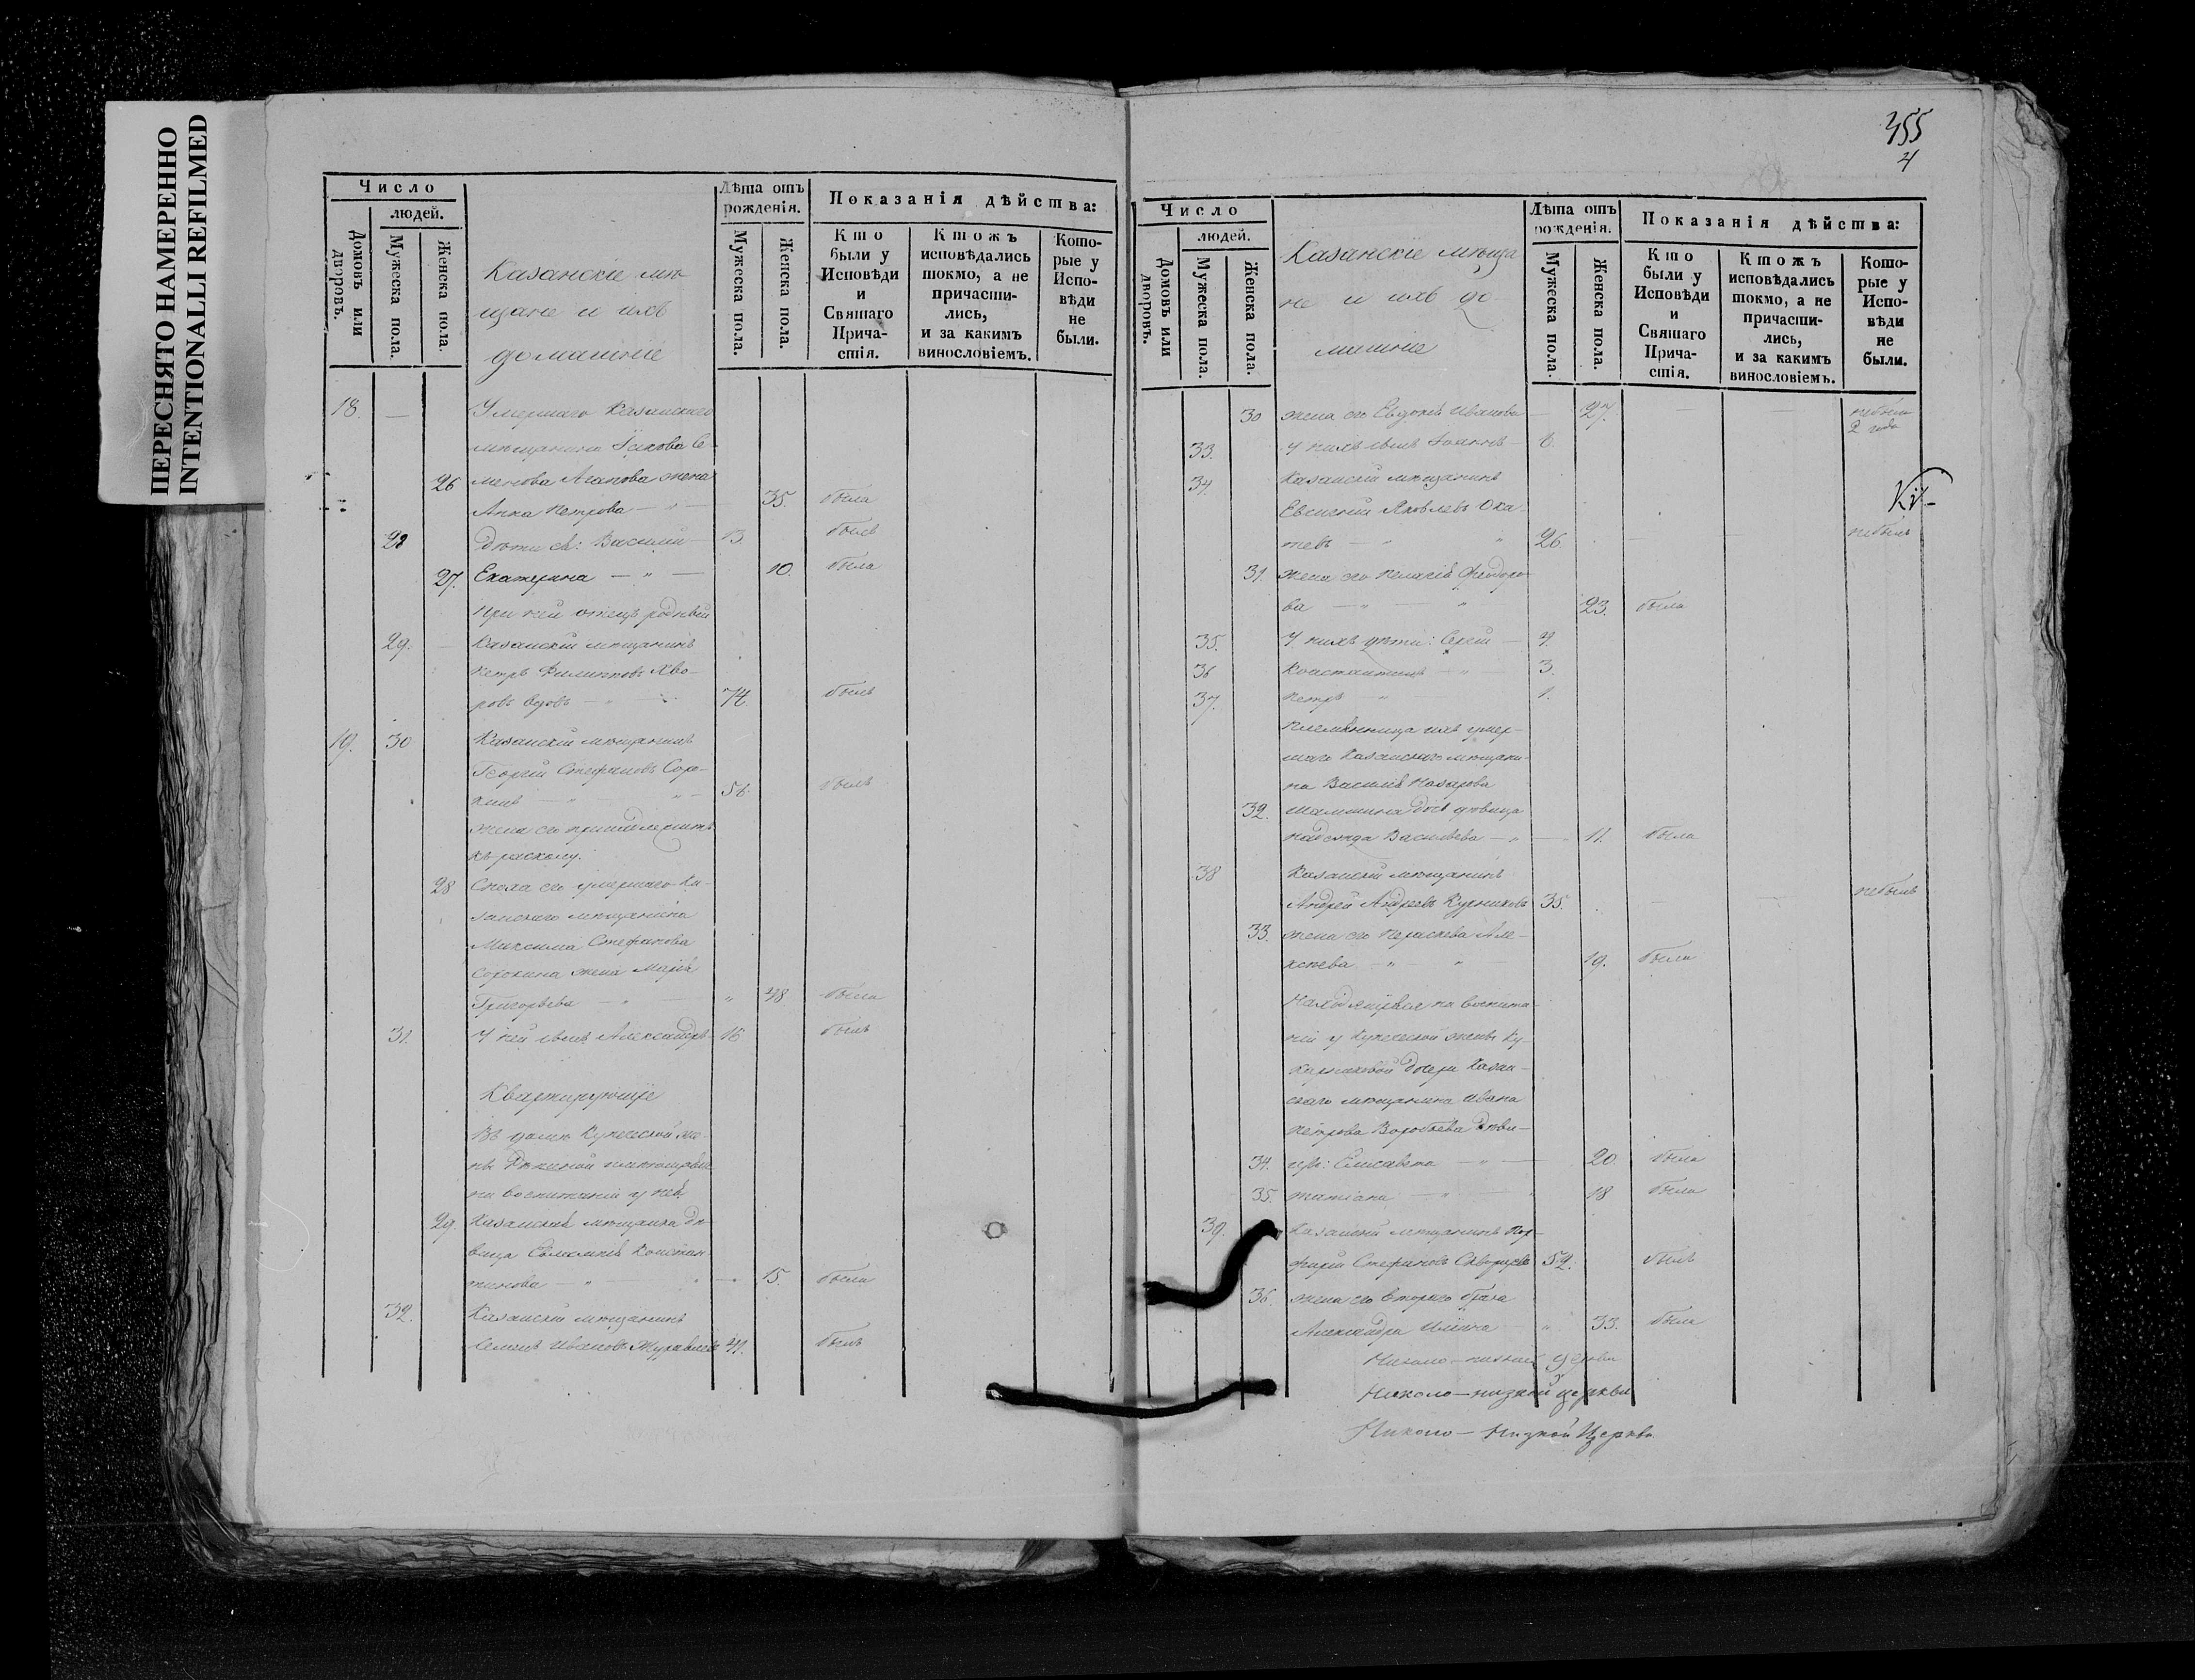 ПЕРЕСНЯТО НАМЕРЕННО
INTENTIONALLI REFILMED
Число
людей.
Домовъ или дворовъ.
Мужеска пола.
Женска пола.
Казанскіе мѣ-
щане и ихъ
домашніе
Лѣта отъ рожденія.
Мужеска пола.
Женска пола.
Показанія дѣйства:
Кто были у Исповѣди и Святаго Причастія.
Ктожъ исповѣдались токмо, а не причастились, и за какимъ винословіемъ.
Которые у Исповѣди не были.
18. — Умершаго Казанскаго
мѣщанина Іакова Се-
26 менова Агапова жена
Анна Петрова — " — 35. была
28 Дѣти ея: Василій — 13. былъ
27. Екатерина — " — 10. была
При ней отецъ родный
29. — Казанскій мѣщанинъ
Петръ Филипповъ Хво-
ровъ вдовъ — " — 74. былъ
19. 30 Казанскій мѣщанинъ
Георгій Стефановъ Соро-
кинъ — " " — 56. былъ
жена его принадлежитъ
къ расколу.
28 Сноха его умершаго Ка-
занскаго мѣщанина
Максима Стефанова
Сорокина жена Марія
Григорьева — " — " 48. была
31. У ней сынъ Александръ — 16 былъ
Квартирующіе
Въ домѣ Купеческой же-
на воспитаніи у ней
29. Казанская мѣщанка дѣ-
вица Евлампія Констан-
тинова — " — 15. была
32. Казанскій мѣщанинъ
Семенъ Ивановъ Журавлевъ 41. былъ
355
4
Число
людей.
Домовъ или дворовъ.
Мужеска пола.
Женска пола.
Казанскіе мѣща
не и ихъ до
машніе
Лѣта отъ рожденія.
Мужеска пола.
Женска пола.
Показанія дѣйства:
Кто были у Исповѣди и Святаго Причастія.
Ктожъ исповѣдались токмо, а не причастились, и за какимъ винословіемъ.
Которые у Исповѣди не были.
30 жена его Евдокія Иванова — 27. — — небыла
2 года
33. У нихъ сынъ Іоаннъ — 6.
34. Казанскій мѣщанинъ
Евгеній Яковлевъ Ока-
тевъ — " " 26. — — небылъ
31. жена его Пелагія Феодоро-
ва — " — " 23. была
35. У нихъ дѣти: Сергій — 4.
36 Константинъ — " — 3.
37. Петръ — " — 1.
Племянница ихъ умер-
шаго Казанскаго мѣщани-
на Василія Назарова
32. дочь дѣвица
Надежда Васильева — " — 11. была
38 Казанскій мѣщанинъ
Андрей Андреевъ Курников 35. — — небылъ
33. жена его Параскева Але-
ксѣева — " — " — 19. была
Находящіяся на воспита-
ніи у Купеческой жены Ку-
дочери Казан-
скаго мѣщанина Ивана
Петрова Воробьева дѣви-
34. цы: Елисавета — " — 20. была
35. Татіана — " — " 18 была
39. Казанскій мѣщанинъ Пор-
фирій Стефановъ Скворцовъ 52. былъ
36. жена его втораго брака
Александра Ильина — " 33. была
Николо-низкой церкви
Николо-низкой церкви
Николо-Низкой Церкви